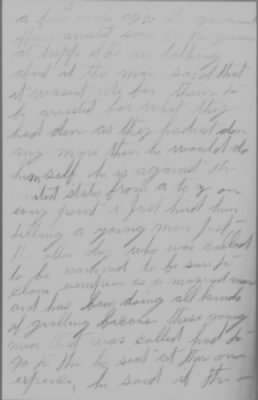 a few days ago the government
they arrest some
at Tripp S.D. in talking
about it this man said that
it wasent rite for them to
be arrested for what they
had don as they hadent don
any more then he would do
himself he is against the
united states from a to z on
every point i just herd him
telling a young man just
the other day who was called
to be examined to be sure to
claim exemption as a married man
and has ben doing all kinds
of growling because these young
men that was called had to
go to the co seat at their own
expense, he said if the